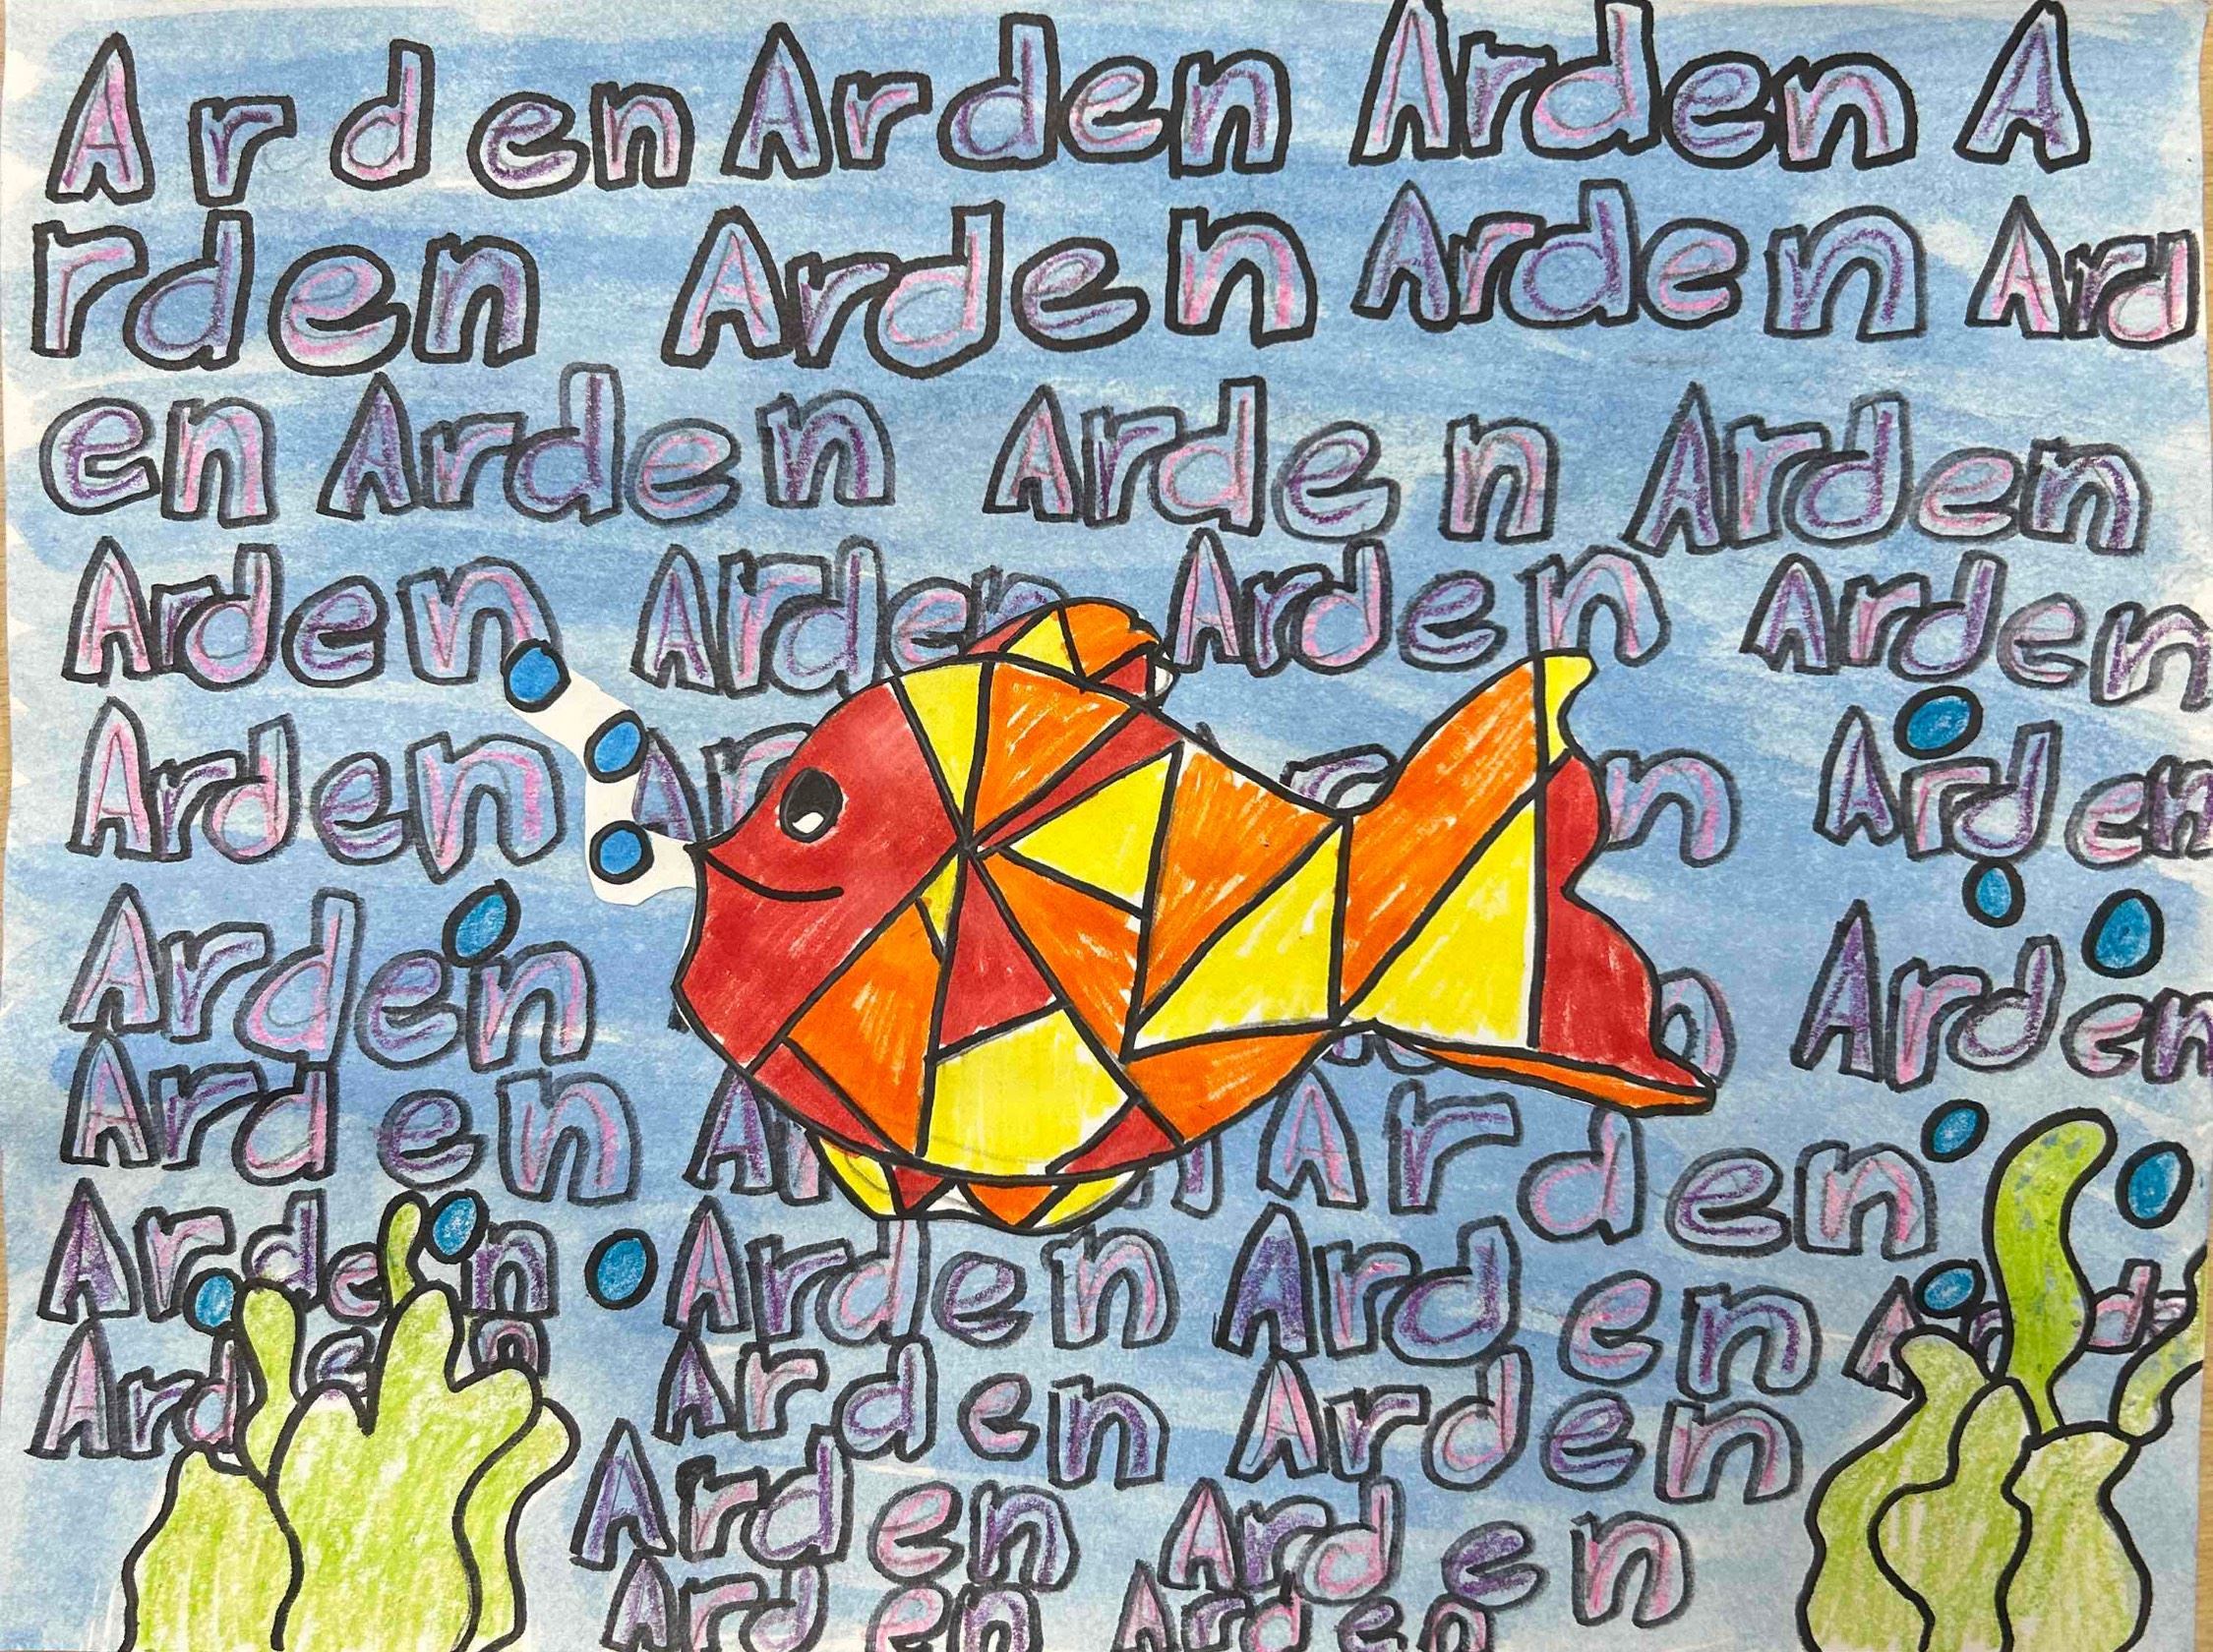 Arden Arden Arden A
rden Arden Arden Ard
en Arden Arden Arden
Arden Arden Arden Arden
Arden Ar n Arden
Arden n Arden
Arden A Arden
Arden Arden Arden Arde
Arden Arden Arden
Arden Arden
Arden Arden